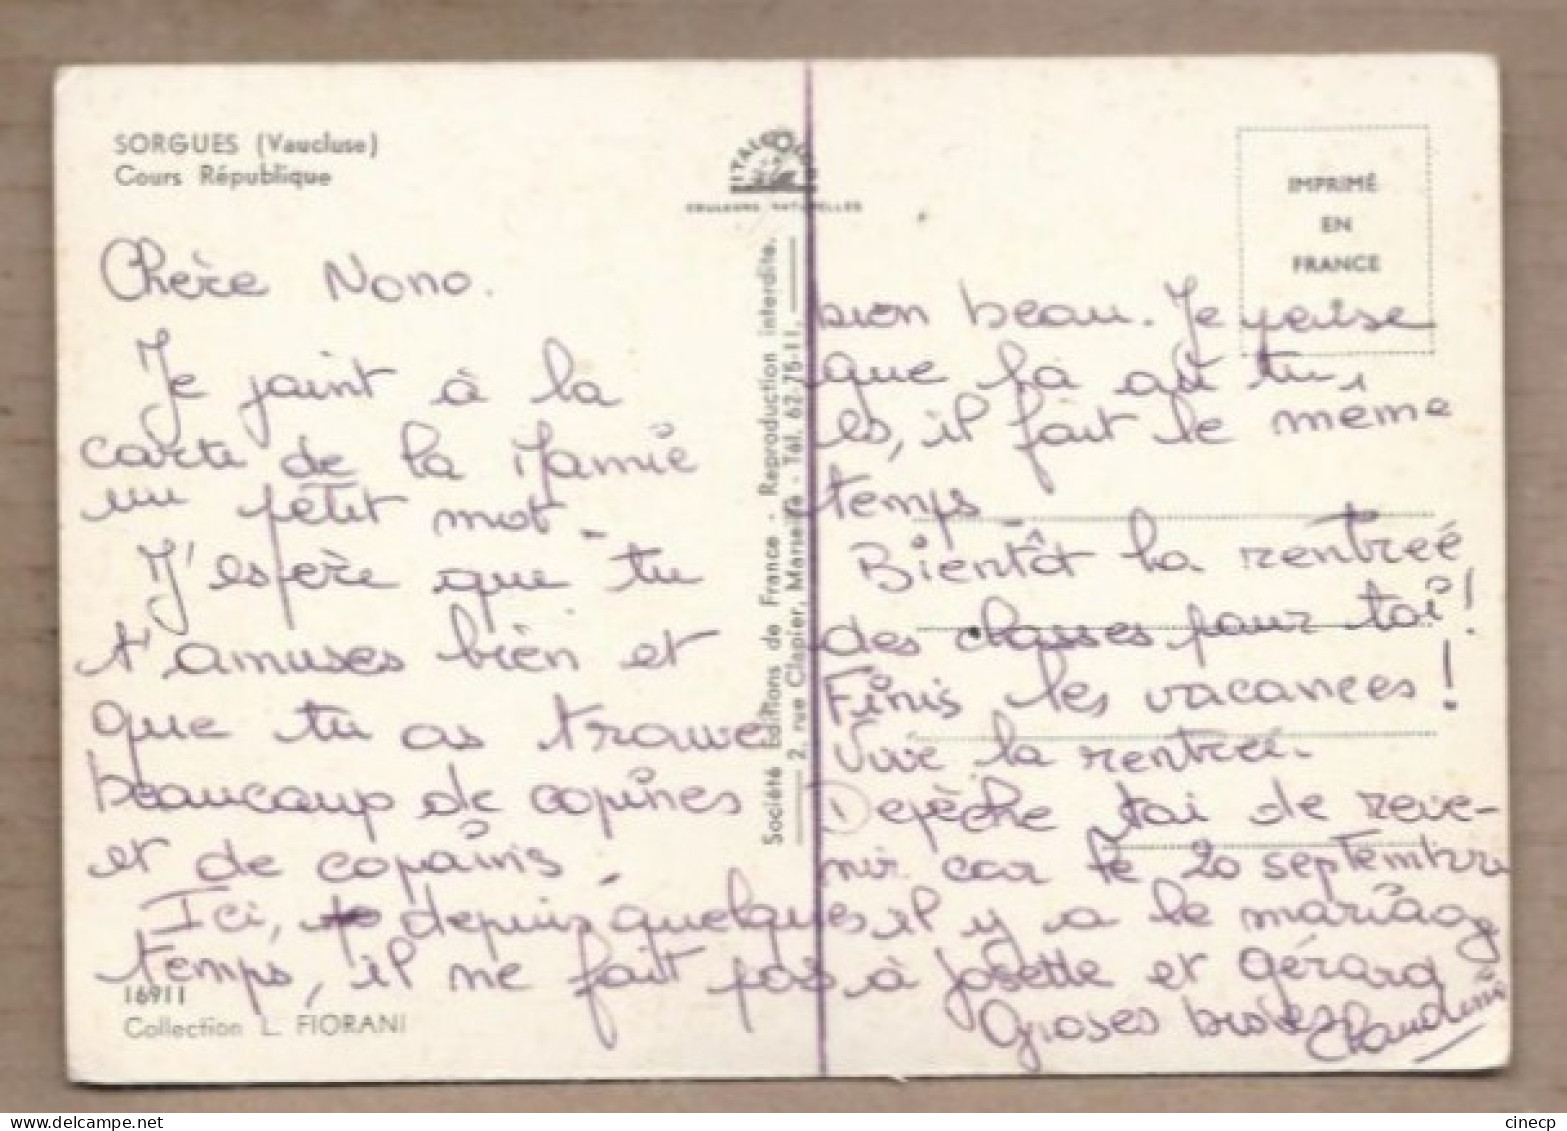 SORGUES (Vaucluse)
Cours République
ITALCOLOR
COULEURS NATURELLES
Chère Nono.
Je joint à la
carte de la Mamie
un petit mot.
J'espère que tu
t'amuses bien et
que tu as trouve
beaucoup de copines
et de copains.
Ici, depuis quelques
temps, il ne fait pas
16911
Collection L. FIORANI
Société Editions de France - Reproduction interdite.
2, rue Clapier, Marseille - Tél. 62-75-11.
IMPRIMÉ
EN
FRANCE
bien beau. Je pense
que là où tu
es, il fait le même
temps
Bientôt la rentreé
des classes pour toi!
Finis les vacances!
Vive la rentreé.
Depèche toi de reve-
nir car le 20 septembre
il y a le mariage
à Josette et Gérard
Groses bises Claudine
cartesmicmot.net
cinecp